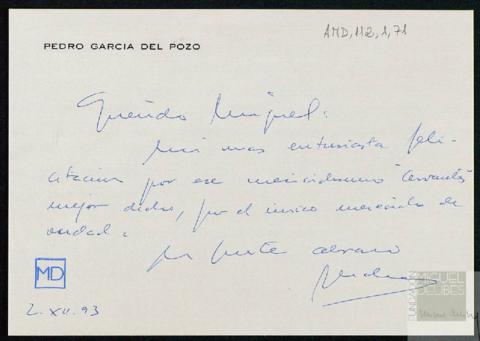 PEDRO GARCIA DEL POZO
AMD, 112, 1, 71
Querido Miguel:
Mi mas entusiasta feli-
citacion por ese merecidisimo "Cervantes"
mejor dicho, por el unico merecido de
verdad.
Un fuerte abrazo
Pedro
MD
2. XII. 93
FUNDACIÓN
MIGUEL
DELIBES